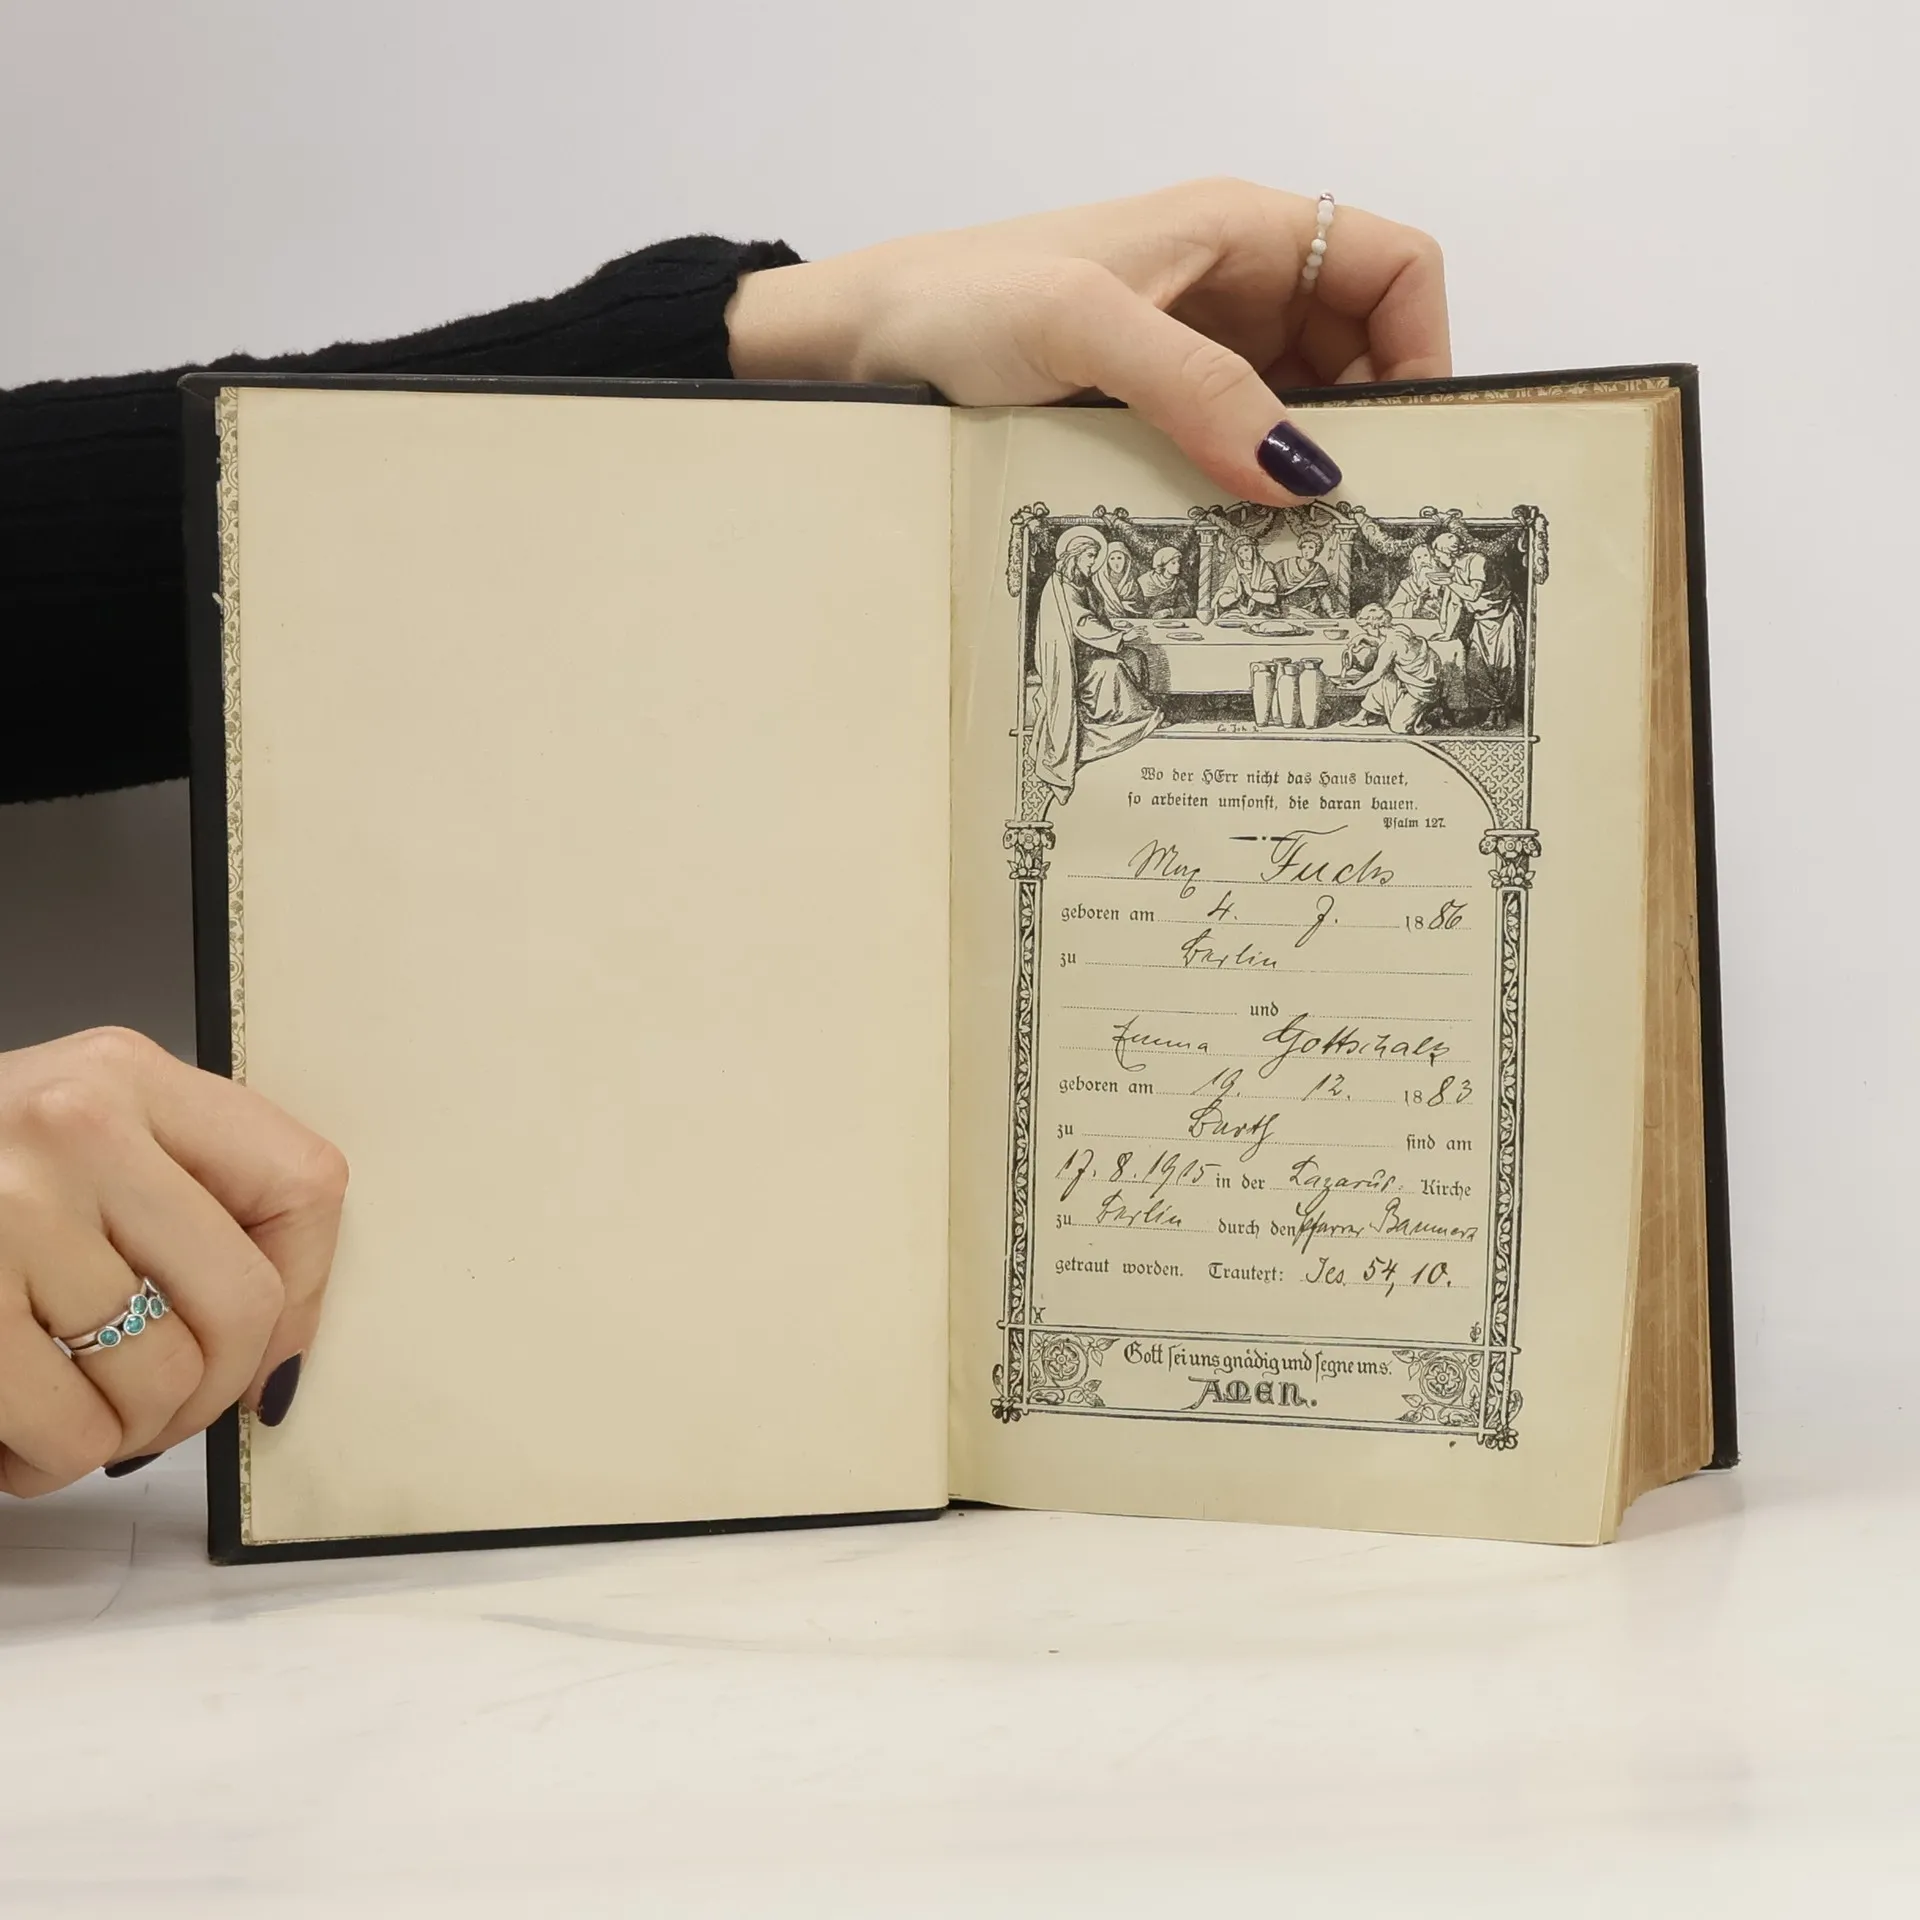 Wo der HErr nicht das Haus bauet,
so arbeiten umsonst, die daran bauen.
Psalm 127.
Max Fuchs
geboren am 4. 7. 1886
zu Berlin
und
Emma Gottschalk
geboren am 19. 12. 1883
zu Barth sind am
17. 8. 1915 in der Lazarus- Kirche
zu Berlin durch den Pfarrer
getraut worden. Trautext: Jes. 54, 10.
Gott sei uns gnädig und segne uns.
AMEN.